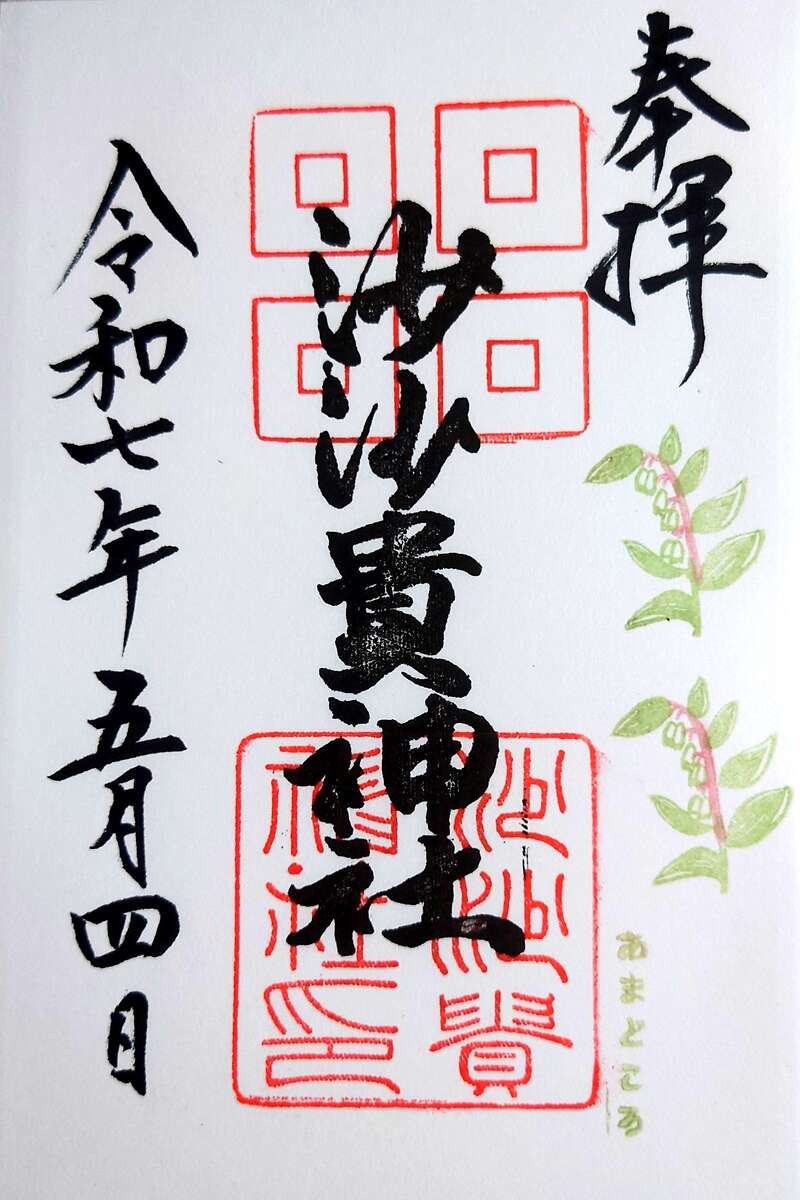 奉拝
沙沙貴神社
沙沙貴
神社印
令和七年五月四日
あまどころ